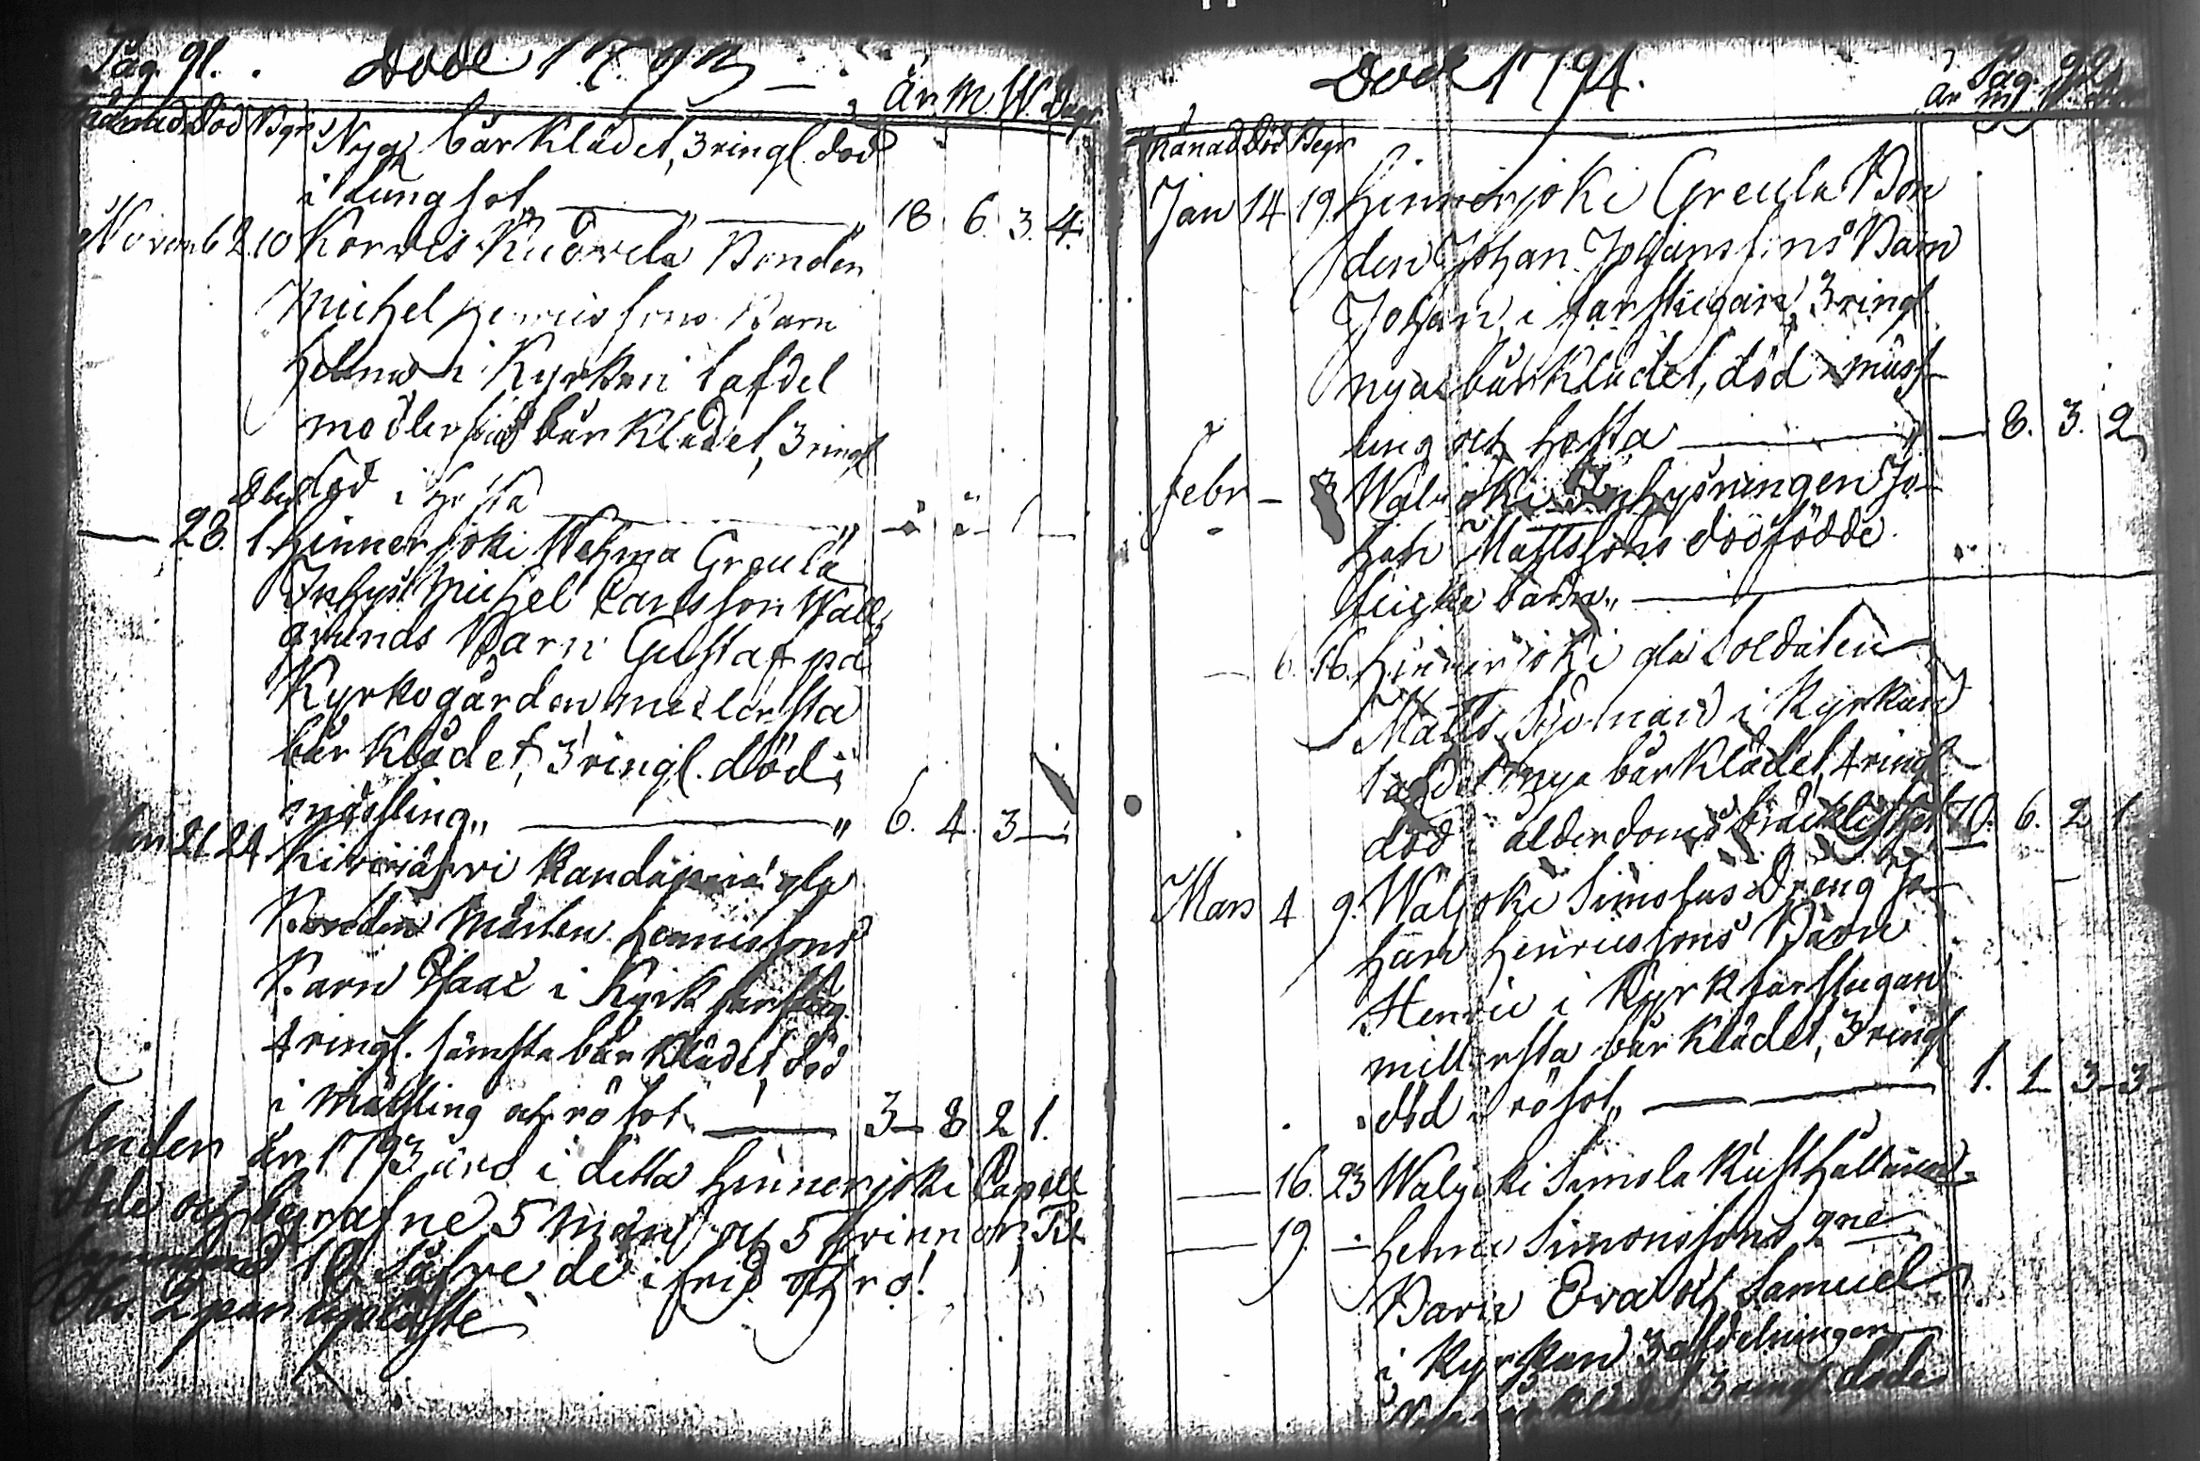 Pag. 91. Döde 1793
År. M. W. Dag.
Månad Död Begr. Nya bårklädet, 3 ringl. död
i lungsot 18. 6. 3. 4.
Novemb 2. 10 Korwes Bonden
Michel Henricssons Barn
Helena i Kyrkan 1 afdel
medlersta bårklädet, 3 ringl
död i hosta
Dbr
23. 1 Hinnerjoki Wehma Greula
Inhys. Michel Carlsson Wall
grunds Barn Gustaf på
Kyrkogården medlersta
bårklädet, 3 ringl. död i
mässling 6. 4. 3
21 24 Kiwijärvi gla
Bonden Mårten Henricssons
Barn Isaac i Kyrk farstug
4 ringl. sämsta bårklädet, död
i mässling och rösot 3 8 2 1.
Under år 1793 äro i detta Hinnerjoki Capell
döde och begrafne 5 Män och 5 Qvinnor
10 Säfve de i frid och ro!
Döde 1794. Pag. 92
År M
Månad Död Begr
Jan 14 19. Hinnerjoki Greula Bon
den Johan Johanssons Barn
Johan i farstugan, 3 ringl.
nya bårklädet, död i mäss
ling och hosta 8. 3. 2
Febr Inhysningen Jo
han Mattssons dödfödde
flicke barn
6. 16. Hinnerjoki gla Soldaten
Matts i Kyrkan
nya bårklädet, 4 ringl
död i ålderdoms bräcklighet 70. 6. 2 1
Mars 4 9. Waljoki Simolas Dreng Jo
han Henricssons Barn
Henric i Kyrk farstugan
millersta bårklädet, 3 ringl
död i rösot 1. 1 3 3
16. 23 Waljoki Simola Rusthållaren
19. Henric Simonssons 2ne
Barn Eva och Samuel
i Kyrkan 3 afdelningen
3 ringl. döde